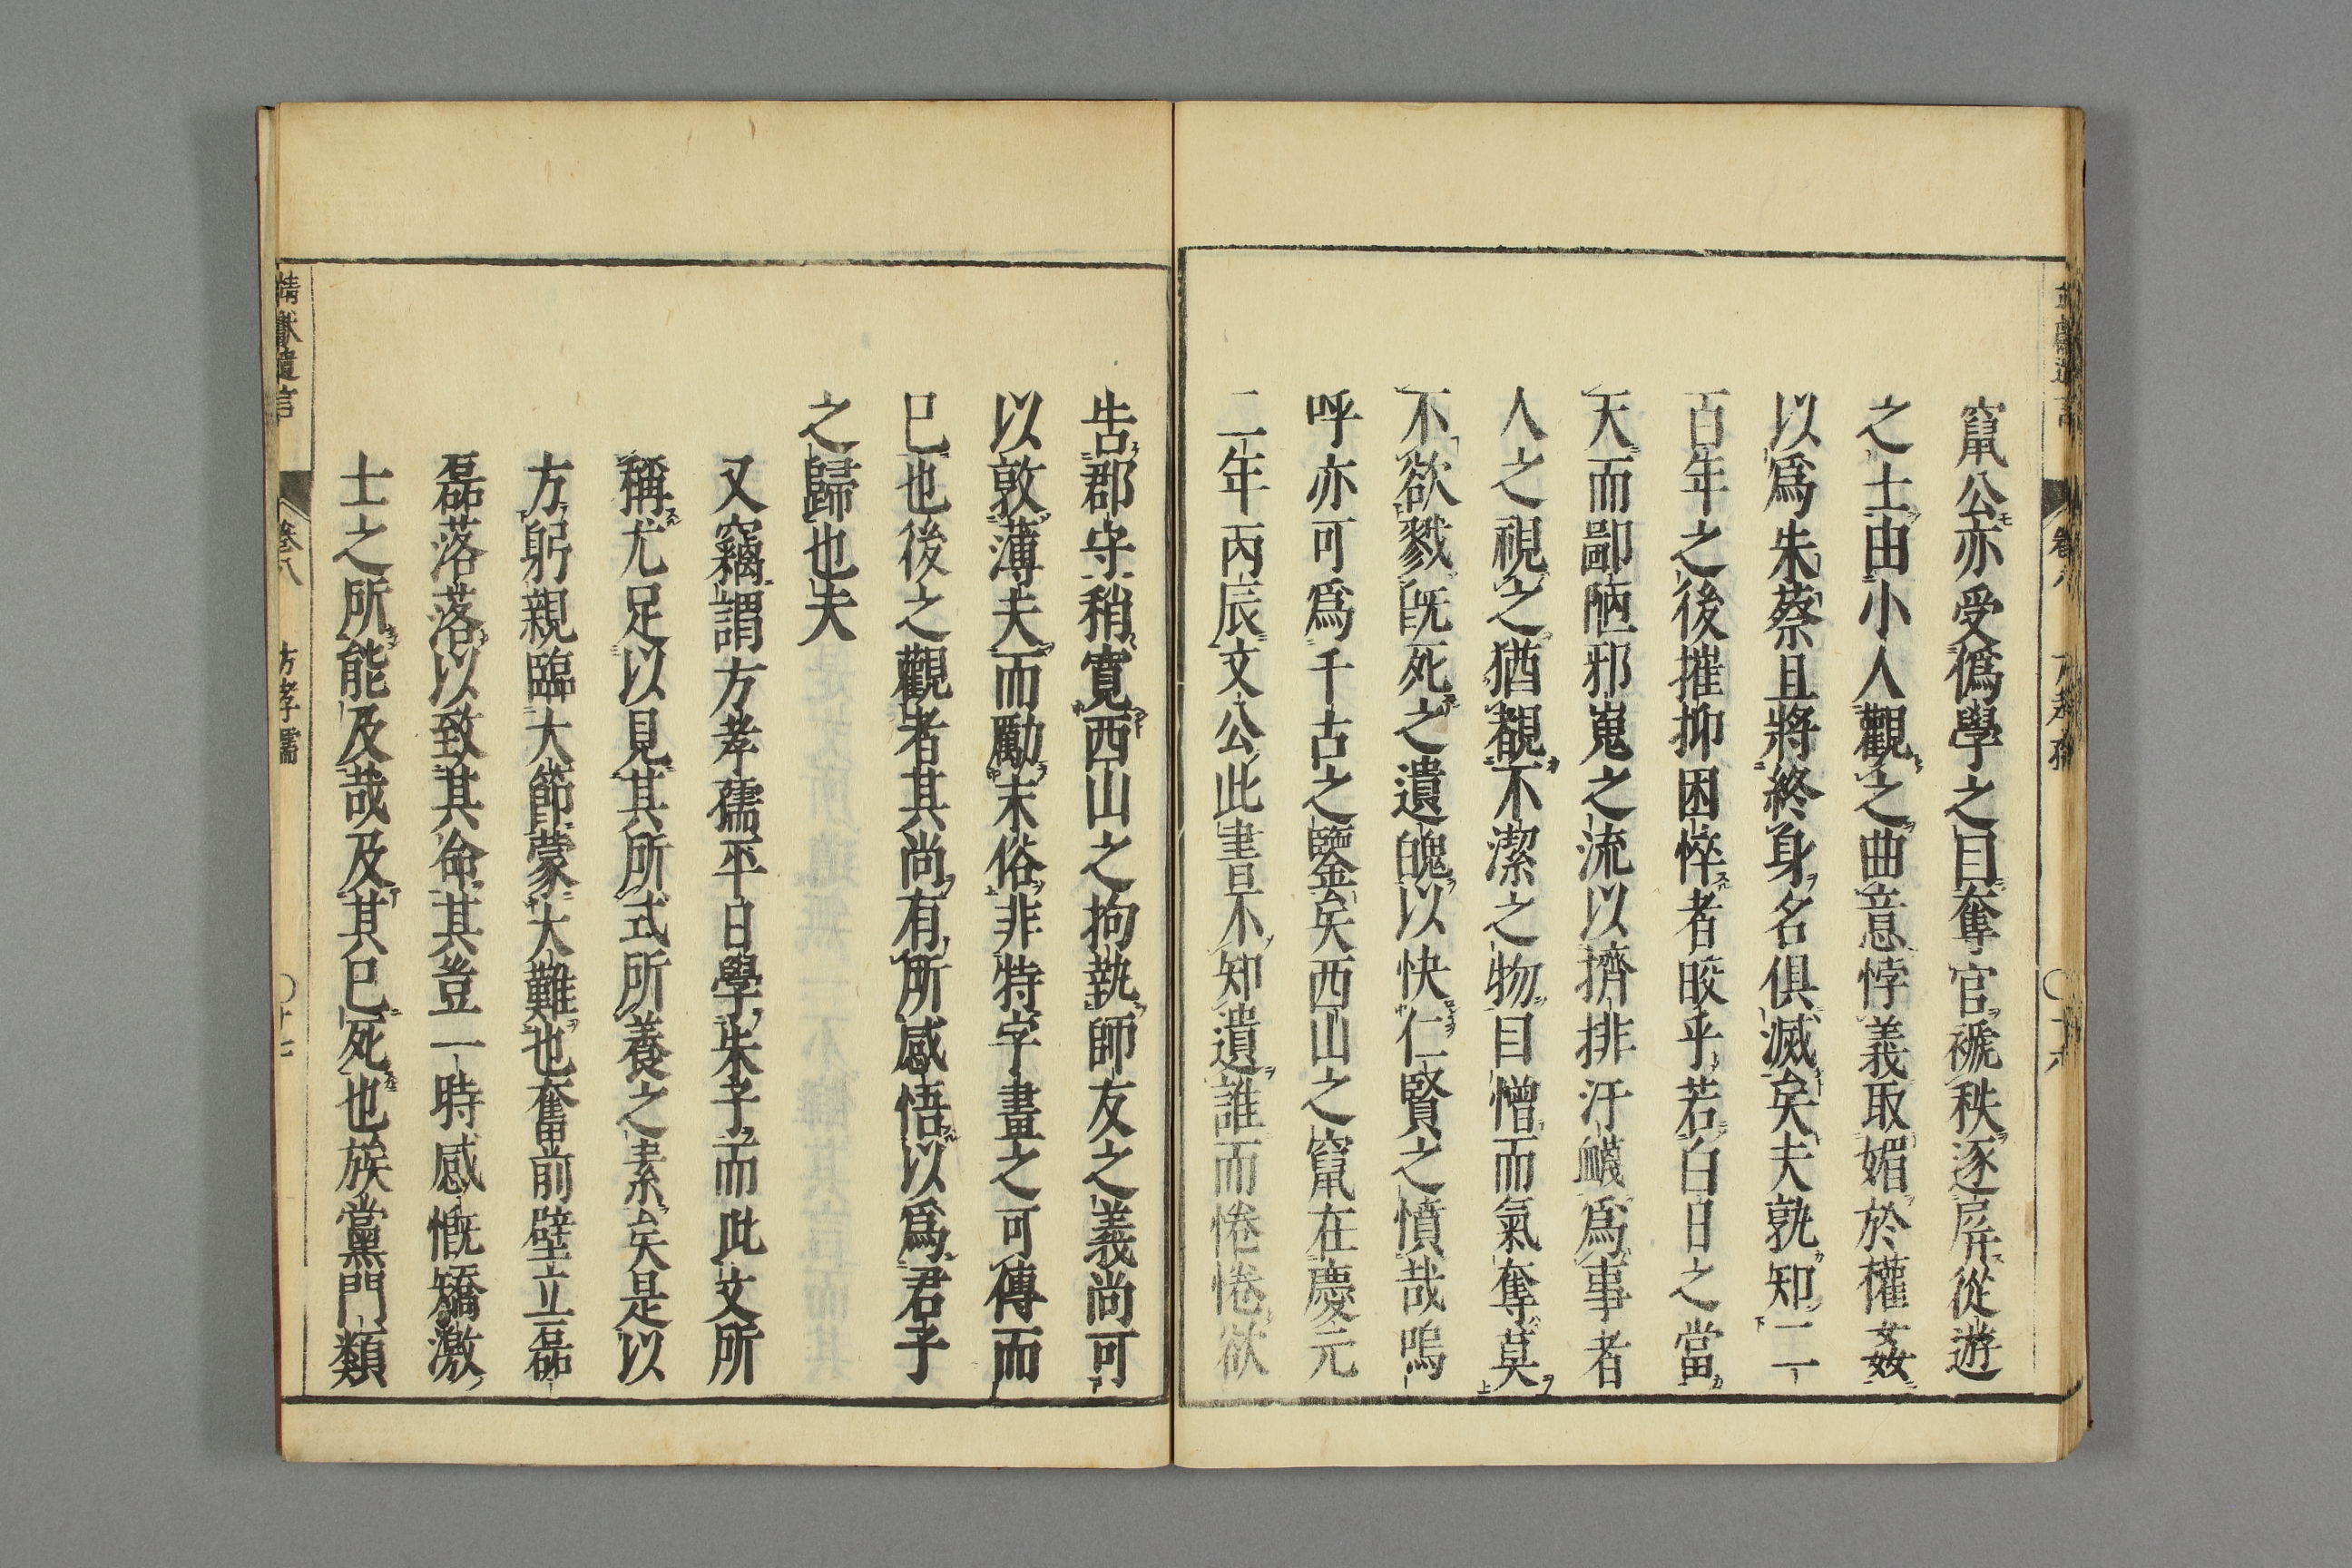 竄公亦受僞學之目奪官褫秩逐屏從遊
之士由小人觀之曲意悖義取媚於權姦
以爲朱蔡且將終身名俱滅矣夫孰知一二
百年之後摧抑困悴者皎乎若白日之當
天而鄙陋邪嵬之流以擠排汙衊爲事者
人之視之猶覩不潔之物目憎而氣奪莫
不欲戮既死之遺魄以快仁賢之憤哉嗚
呼亦可爲千古之鑒矣西山之竄在慶元
二年丙辰文公此書不知遺誰而惓惓欲
告郡守稍寬西山之拘執師友之義尚可
以敦薄夫而勵末俗非特字畫之可傳而
已也後之觀者其尚有所感悟以爲君子
之歸也夫
又竊謂方孝孺平日學朱子而此文所
稱尤足以見其所式所養之素矣是以
方躬親臨大節蒙大難也奮前壁立磊
磊落落以致其命其豈一時感慨矯激
士之所能及哉及其已死也族黨門類
靖獻遺言
卷八
方孝孺
十七